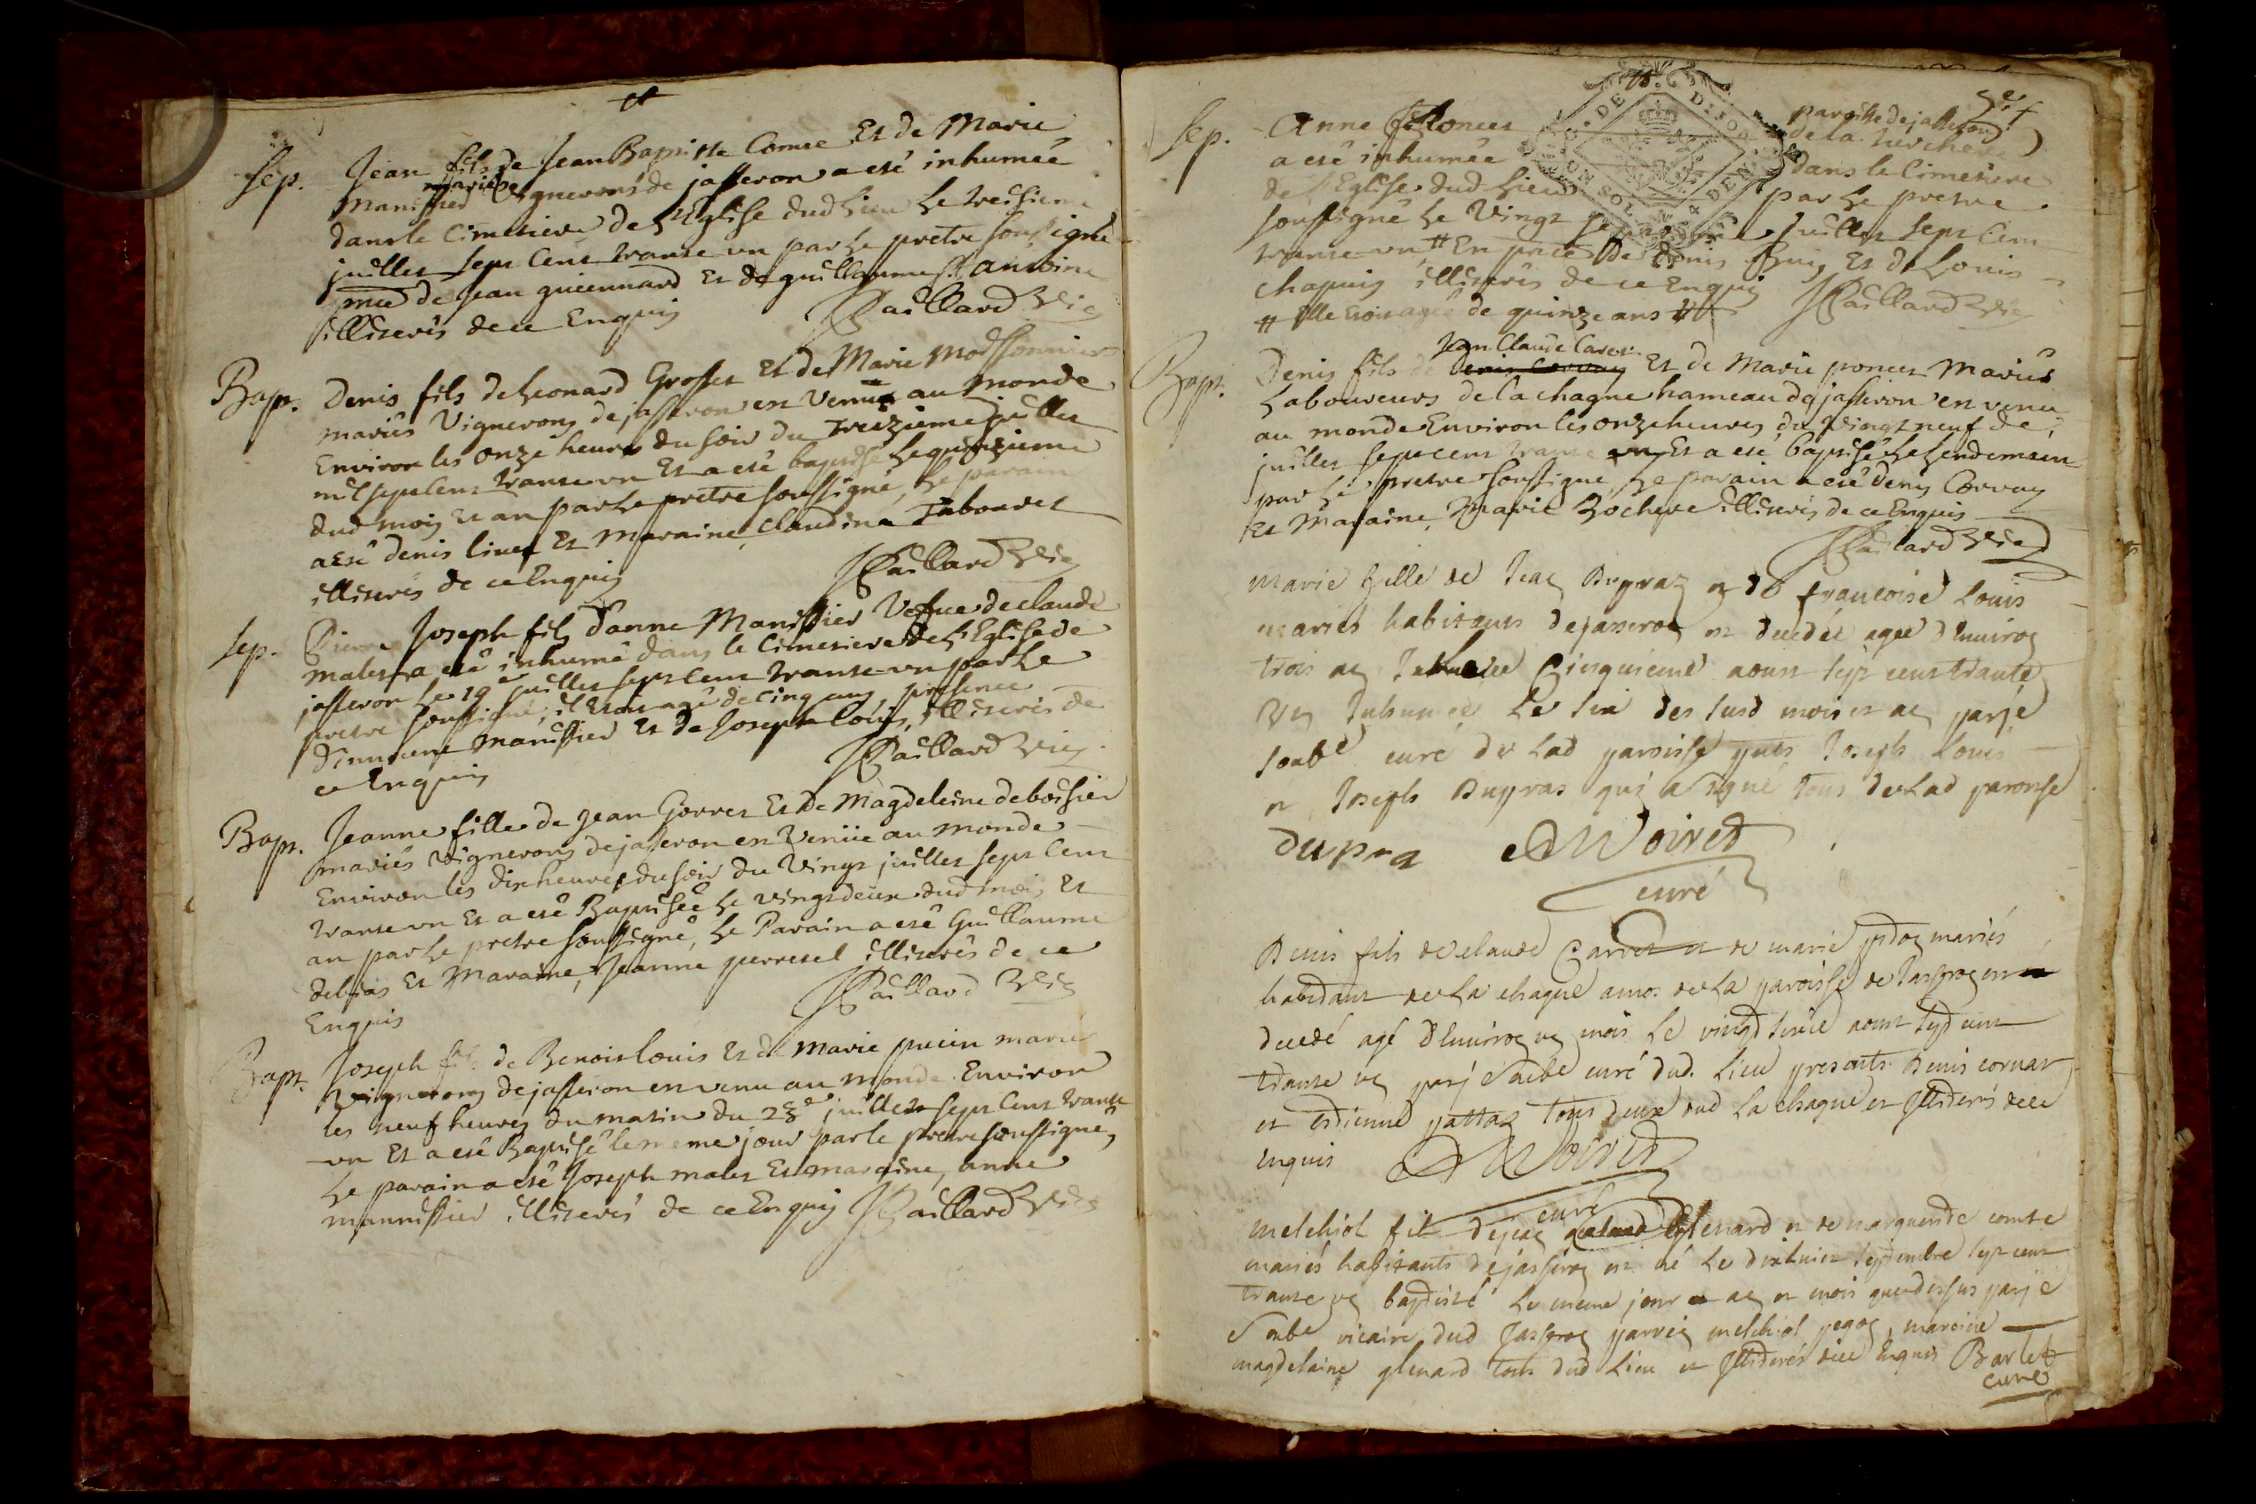 Sep. Jean fils de Jean Baptiste Comte Et de Marie
Manissier mariés Vignerons de jasseron a esté inhumée
dans le Cimetiere de L'Eglise dud Lieu le treisieme
juillet sept Cent trante un par le pretre soussigné
de Jean guiennard Et de guillaume antoine
illiterés de ce Enquis Paillard Vic
Bapt. Denis fils de Leonard Grosset Et de Marie
mariés Vignerons de jasseron est Venu au monde
Environ les onze heures du soir du Treizieme juillet
mil sept Cent trante un Et a esté baptisé le quinzieme
dud mois Et an par le pretre soussigné, Le parain
a esté denis livet Et Maraine, Claudine Tabouret
illiterés de ce Enquis Paillard Vic
Sep. Pierre Joseph fils d'anne Manissier Vefve de claude
malet a esté inhumé dans le Cimetiere de L'Eglise de
jasseron le 19e juillet sept Cent trante un par le
pretre soussigné, il Etoit agé de Cinq ans, presence
manissier Et de Joseph Loüis, illiterés de
ce Enquis Paillard Vic
Bapt. Jeanne fille de Jean Gorret Et De Magdeleine deboissier
mariés Vignerons de jasseron est Venüe au monde
Environ les dix heures du soir du Vingt juillet sept Cent
trante un Et a esté Baptisée Le vingt deux dud mois Et
an par Le pretre soussigné, Le Parain a esté Guillaume
debias Et Maraine, Jeanne perretel illiterés de ce
Enquis Paillard Vic
Bapt. Joseph fils de Benoist Loüis Et de Marie pucin mariés
Vignerons de jasseron est venu au monde Environ
les neuf heures du matin du juillet sept Cent trante
un Et a esté Baptisé le meme jour par le pretre soussigné,
Le parain a esté Joseph malet Et maraine, anne
mannissier illiterés de ce Enquis Paillard Vic
5e f
Sep. Anne paroisse de jasseron
a esté inhumée dans le Cimetiere
de L'Eglise dud Lieu par Le pretre
soussigné Le Vingt juillet sept Cent
trante un # En De Denis Et de Louis
chapuis illiterés de ce Enquis Paillard Vic
# Elle Etoit agée de quinze ans #
Bapt. Denis fils de Jean Claude Caret Et de Marie poncet Mariés
Laboureurs de la chagne hameau de jasseron est venu
au monde Environ les onze heures du Vingt neuf de
juillet sept cent trante un Et a esté baptisé Le Lendemain
par Le pretre soussigné, Le parain a esté denis Corvay
Et Maraine, Marie Rochere illiterés de ce Enquis
Paillard Vic
Marie fille de Jean Dupraz et de françoise Louis
mariés habitants de jasseron est decedée agée d'Environ
trois an Cinquieme aoust sept cent trante
un Inhumée Le six des susd mois et an par je
soubé curé de Lad paroisse Joseph Louis
et Joseph Dupras qui a signé tous de Lad paroisse
Dupra AWoiret
curé
Denis fils de claude Carret et de marie mariés
habitant de La chagne de La paroisse de Jasseron est
decedé agé d'Environ un mois Le vingt aoust sept cent
trante un par je soubé curé dud. Lieu presents Denis cornat
et Estienne pattaz tous deux dud La chagne et Illiterés de ce
enquis AWoiret
curé
Melchiol fil de jean Glenard et de marguerite comte
mariés habitants de jasseron est né Le dixhuict septembre sept cent
trante un baptisé Le meme jour an et mois que dessus par je
soubé vicaire dud Jasseron parrein melchiol, mareine
magdelaine glenard tous dud Lieu et Illiterés de ce Enquis Barlet
curé